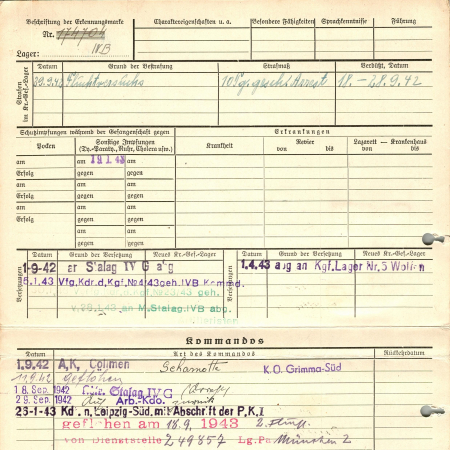 Beschriftung der Erkennungsmarke
Nr. 174704
IVB
Lager:
Charaktereigenschaften u. a.
Besondere Fähigkeiten
Sprachkenntnisse
Führung
Strafen im Kr.-Gef.-Lager
Datum
Grund der Bestrafung
Strafmaß
Verbüßt, Datum
Fluchtversuchs
10 Tg. gesch. Arrest
18. - 28. 9. 42
Schutzimpfungen während der Gefangenschaft gegen
Erkrankungen
Pocken
Sonstige Impfungen
(Ty.-Paraty., Ruhr, Cholera usw.)
Krankheit
Revier
von bis
Lazarett - Krankenhaus
von bis
am
am 19.1.43
am
Erfolg
gegen
gegen
am
am
am
Erfolg
gegen
gegen
am
am
am
Erfolg
gegen
gegen
Versetzungen
Datum
Grund der Versetzung
Neues Kr.-Gef.-Lager
1-9-42 an Stalag IV G abg
5.1.43 Vfg. Kdr. d. Kgf. No 4/43 geh. IVB Kommd.
v. 28.1.43 an M. Stalag. IVB abg.
Versetzungen
Datum
Grund der Versetzung
Neues Kr.-Gef.-Lager
1.4.43 abg an Kgf. Lager Nr. 5
Kommandos
Datum
Art des Kommandos
Rückkehrdatum
1.9.42 A.K. Colmen Schamotte K.O. Grimma-Süd
11.9.42 geflohen
18. Sep. 1942 Stalag IV G
29. Sep. 1942 Aus Arb.-Kdo. zurück
23-1-43 Kd. n. Leipzig-Süd. mit Abschrift der P.K.I
geflohen am 18.9. 1943 2. Flucht
von Dienststelle 249857 Lg. Pa. München 2